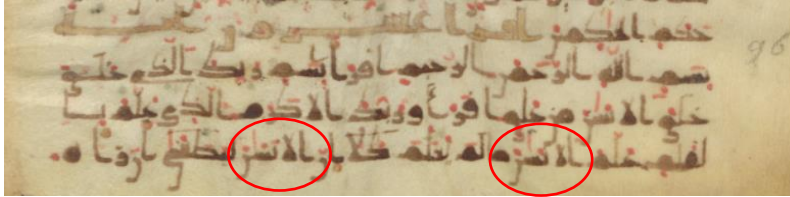 حكم الحكمين
بسم الله الرحمن الرحيم اقرا باسم ربك الذي خلق
خلق الانسن من علق اقرا وربك الاكرم الذي علم با
لقلم علم الانسن ما لم يعلم كلا ان الانسن ليطغى ان راه
96